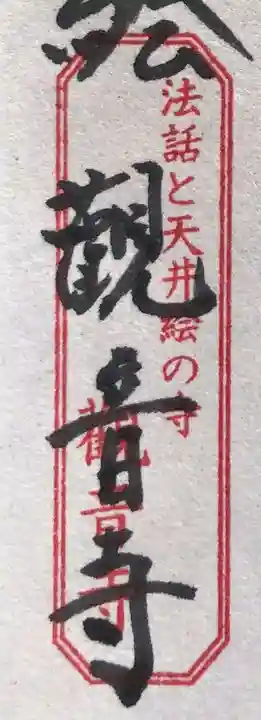 法話と天井絵の寺
觀音寺
觀音寺